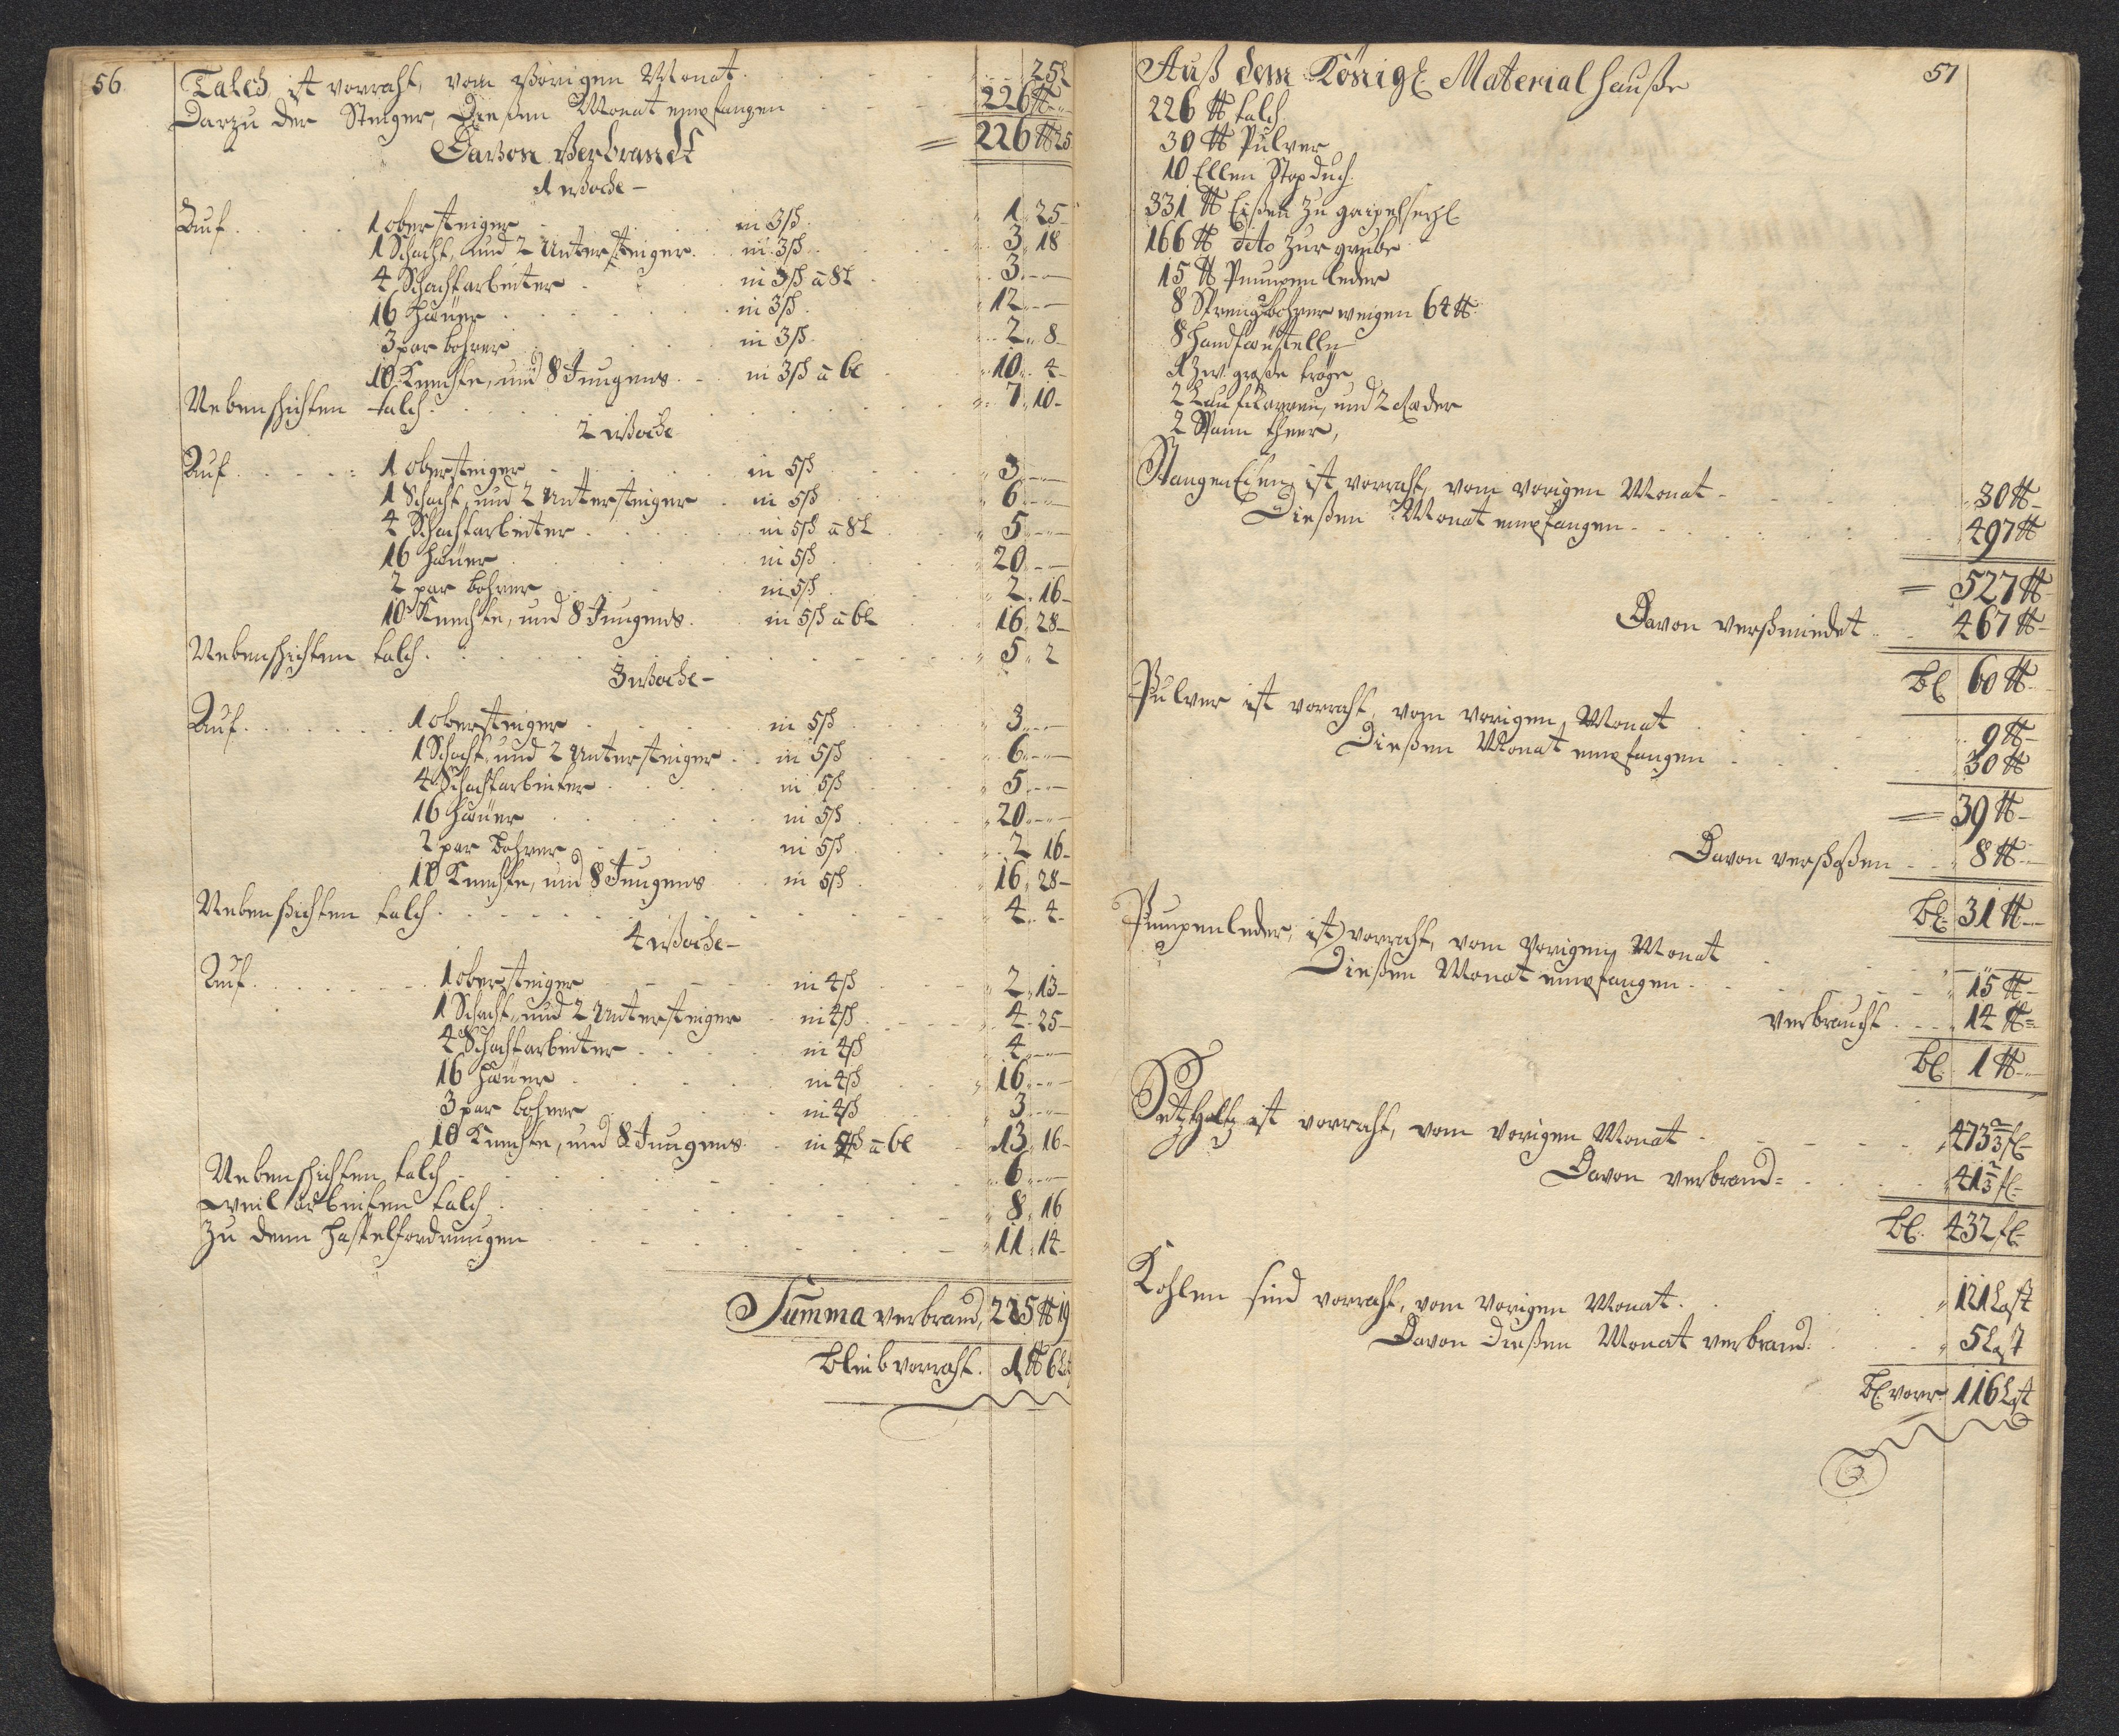 56
Talch ist vorraht, vom vorigen Monat . . . 25 L
Darzu der Steiger, Dießen Monat empfangen . . . 226 ℔
Davon verbrandt = 226 ℔ 25
1 woche –
Auf . . . 1 obersteiger . . . in 3 sch . . . 1 „ 25 –
1 Schacht, und 2 Untersteiger . . in 3 sch . . . 3 „ 18
4 Schachtarbeiter . . . in 3 sch a 8 L . . . 3 „ –
16 Häüer . . . in 3 sch . . . 12 „ –
3 par bohrer . . . in 3 sch . . . 2 „ 8 –
10 Knechte, und 8 Jungens . . in 3 sch a 6 L . . . 10 „ 4 –
Nebenschichten talch . . . 7 „ 10 –
2 woche
Auf . . . 1 obersteiger . . . in 5 sch . . . 3 „ –
1 Schacht, und 2 Untersteiger . . in 5 sch . . . 6 „ –
4 Schachtarbeiter . . . in 5 sch a 8 L . . . 5 „ –
16 Häüer . . . in 5 sch . . . 20 „ –
2 par bohrer . . . in 5 sch . . . 2 „ 16 –
10 Knechte, und 8 Jungens . . in 5 sch a 6 L . . . 16 „ 28 –
Nebenschichten talch . . . 5 „ 2
3 woche –
Auf . . . 1 obersteiger . . . in 5 sch . . . 3 „ –
1 Schacht, und 2 Untersteiger . . in 5 sch . . . 6 „ –
4 Schachtarbeiter . . . in 5 sch . . . 5 „ –
16 Häüer . . . in 5 sch . . . 20 „ –
2 par Bohrer . . . in 5 sch . . . 2 „ 16 –
10 Knechte, und 8 Jungens . . in 5 sch . . . 16 „ 28 –
Nebenschichten talch . . . 4 „ 4 –
4 woche –
Auf . . . 1 obersteiger . . . in 4 sch . . . 2 „ 13 –
1 Schacht, und 2 Untersteiger . . in 4 sch . . . 4 „ 25 –
4 Schachtarbeiter . . . in 4 sch . . . 4 „ –
16 Häüer . . . in 4 sch . . . 16 „ –
3 par bohrer . . . in 4 sch . . . 3 „ –
10 Knechte, und 8 Jungens . . in 4 sch a 6 L . . . 13 „ 16 –
Nebenschichten talch . . . 6 „ –
weil arbeiten talch . . . 8 „ 16
Zu denn Haspelfordrungen . . . 11 „ 14 –
Summa verbrand, 225 ℔ 19
bleib vorraht . 1 ℔ 6 L
57
Auß dem Königl Material Hauße
226 ℔ talch
30 ℔ Pulver
10 Ellen Stopduch
331 ℔ Eißen zu
166 ℔ dito zur grube
15 ℔ Pumpen leder
8 Sprengbohrer weigen 64 ℔
8 Handfäustelle
große tröge
2 Laufkarren, und 2 Räder
2 Kann theer,
Stangen Eisen, ist vorraht, vom vorigen Monat . . . 30 ℔
Dießen Monat empfangen . . . 497 ℔
= 527 ℔
Davon verschmiedet . . 467 ℔
bl 60 ℔
Pulver ist vorraht, vom vorigen Monat . . . 9 ℔
Dießen Monat empfangen . . . 30 ℔
= 39 ℔
Davon verschoßen . . . 8 ℔
bl 31 ℔
Pumpenleder, ist vorraht, vom vorigen Monat . . . „
Dießen Monat empfangen . . . 15 ℔
verbraucht . . . 14 ℔
bl 1 ℔
Setzholtz ist vorraht, vom vorigen Monat . . . 473 2/3 fl
Davon verbrand = . . . 41 2/3 fl
bl. 432 fl
Kohlen sind vorraht, vom vorigen Monat . . . 121 Last
Davon Dießen Monat verbrand . . . 5 Last
bl vorr 116 Last